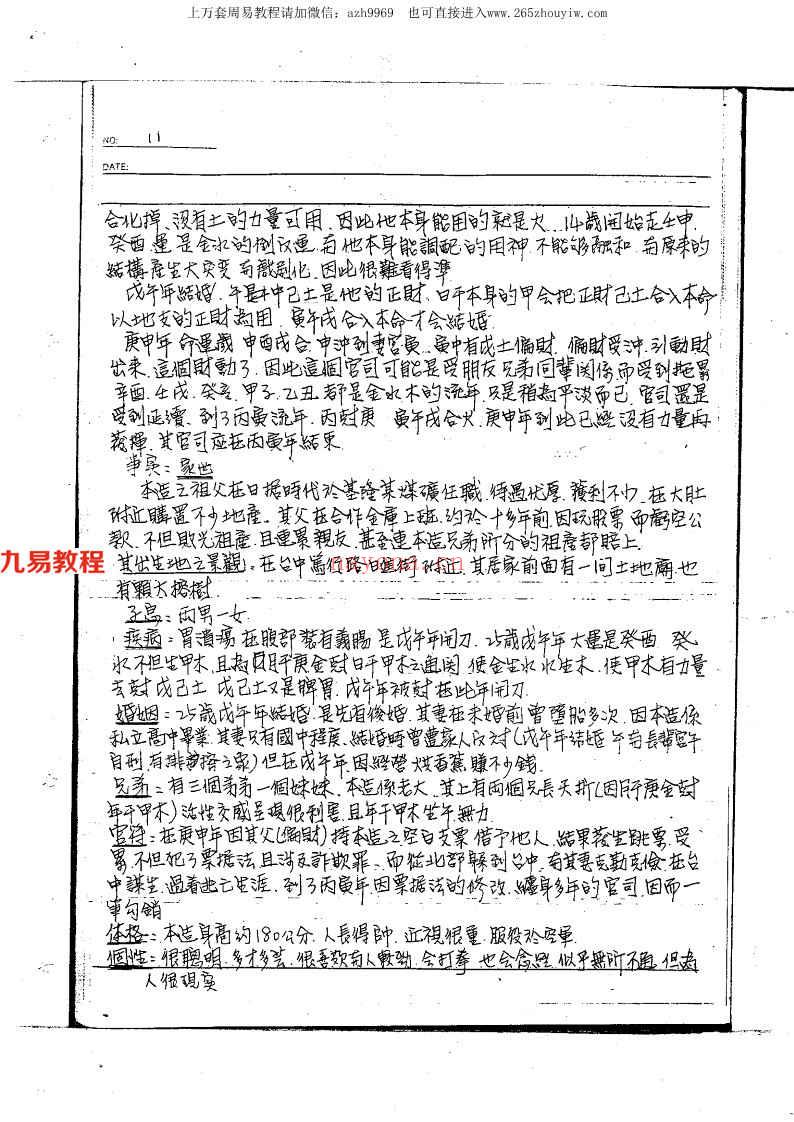 上万套周易教程请加微信：azh9969 也可直接进入www.265zhouyiw.com
NO: 11
DATE:
合化掉、没有土的力量可用、因此他本身能用的就是火、14歲開始走壬申、
癸酉運、是金水的倒反運、与他本身能調配的用神、不能够融和、与原來的
結構產生大突变、与戲剧化、因此很難看得準
戊午年結婚、午是中己土是他的正財、日干本身的甲会把正財己土合入本命
以地支的正財為用、寅午戌合入本命才会結婚
庚申年、命運歲、申酉戌合、申沖到妻宮寅、寅中有戊土偏財、偏財受沖、引動財
出來、這個財動了、因此這個官司可能是受朋友兄弟同輩関係而受到拖累
辛酉、壬戌、癸亥、甲子、乙丑、都是金水木的流年、只是稍為平淡而已、官司還是
受到延續、到了丙寅流年、丙尅庚、寅午戌合火、庚申年到此已經没有力量再
發揮、其官司应在丙寅年結束
事实：家世
本造之祖父在日据時代於基隆某煤礦任職、待遇优厚、獲利不少、在大肚
附近購置不少地產、其父在合作金庫上班、約於十多年前、因玩股票而虧空公
款、不但敗光祖產、且連累親友、甚至連本造兄弟所分的祖產都賠上
九易教程
其出生地之景觀：在台中 附近、其居家前面有一间土地廟、也
有顆大榕樹
子息：两男一女
疾病：胃潰瘍、在腹部裝有義腸、是戊午年開刀、25歲戊午年大運是癸酉、癸
水不但生甲木、且為月干庚金尅日干甲木之通関、使金生水、水生木、使甲木有力量
去尅戊己土、戊己土又是脾胃、戊午年被尅、在此年開刀
婚姻：25歲戊午年結婚、是先有後婚、其妻在未婚前曾墮胎多次、因本造係
私立高中畢業、其妻只有國中程度、結婚時曾遭家人反対(戊午年結婚、午為長輩宮午
自刑、有排 之象)但在戊午年、因經營烘香蕉賺不少錢
兄弟：有三個弟弟一個妹妹、本造係老大、其上有两個兄長夭折(因月干庚金尅
年干甲木)活性交感呈現很利害、且年干甲木坐午無力
官符：在庚申年因其父(偏財)持本造之空白支票借予他人、結果發生跳票、受
累、不但犯了票据法、且涉及詐欺罪、而從北部躲到台中、与其妻克勤克儉、在台
中謀生、過着逃亡生涯、到了丙寅年因票据法的修改、纏身多年的官司、因而一
筆勾銷
体格：本造身高約180公分、人長得帥、近視很重、服役於空軍
個性：很聰明、多才多芸、很喜歡与人 、会打拳、也会念經、似乎無所不通、但為
人很現実